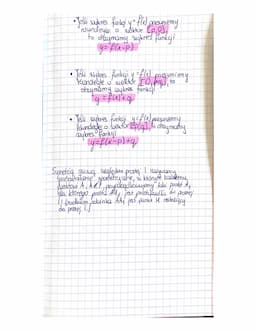 • Jeśli wykres funkcji y=f(x) przesuniemy
równolegle o wektor [p,0],
to otrzymamy wykres funkcji
y=f(x-p)
• Jeśli wykres funkcji y=f(x) przesuniemy
równolegle o wektor [0,q], to
otrzymamy wykres funkcji
y=f(x)+q
• Jeśli wykres funkcji y=f(x) przesuniemy
równolegle o wektor [p,q], to otrzymamy
wykres funkcji
y=f(x-p)+q
Symetrią osiową względem prostej l nazywamy
przekształcenie geometryczne, w którym każdemu
punktowi A,
dla którego prosta AA₁ jest prostopadła do prostej
l, środkiem odcinka AA₁ jest punkt
do prostej l.